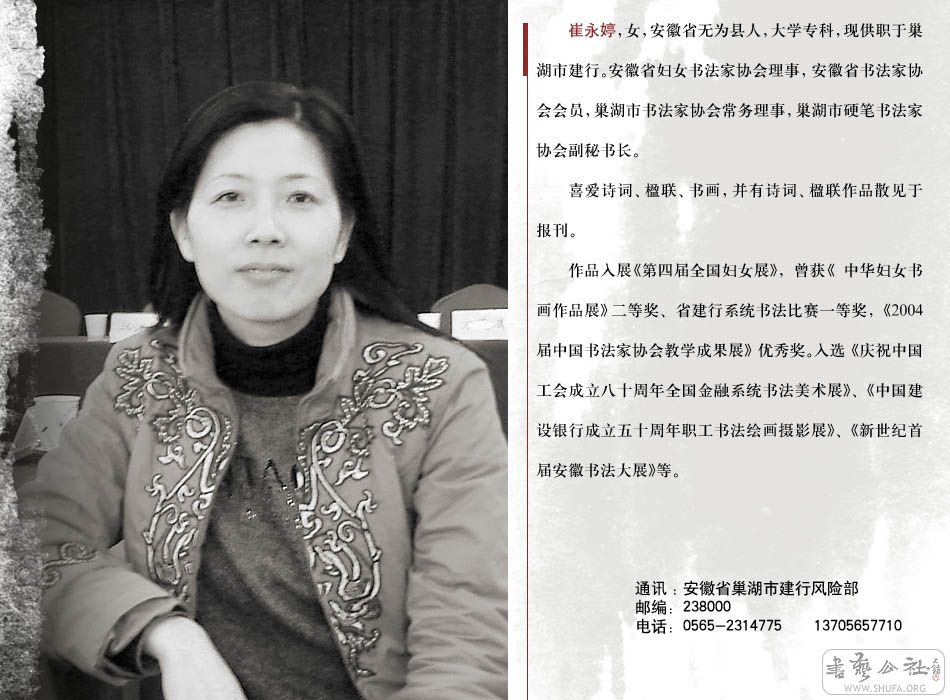 崔永婷，女，安徽省无为县人，大学专科，现供职于巢
湖市建行。安徽省妇女书法家协会理事，安徽省书法家协
会会员，巢湖市书法家协会常务理事，巢湖市硬笔书法家
协会副秘书长。
喜爱诗词、楹联、书画，并有诗词、楹联作品散见于
报刊。
作品入展《第四届全国妇女展》，曾获《 中华妇女书
画作品展》二等奖、省建行系统书法比赛一等奖，《2004
届中国书法家协会教学成果展》优秀奖。入选《庆祝中国
工会成立八十周年全国金融系统书法美术展》、《中国建
设银行成立五十周年职工书法绘画摄影展》、《新世纪首
届安徽书法大展》等。
通讯：安徽省巢湖市建行风险部
邮编：238000
电话：0565-2314775 13705657710
書藝公社
WWW.SHUFA.ORG